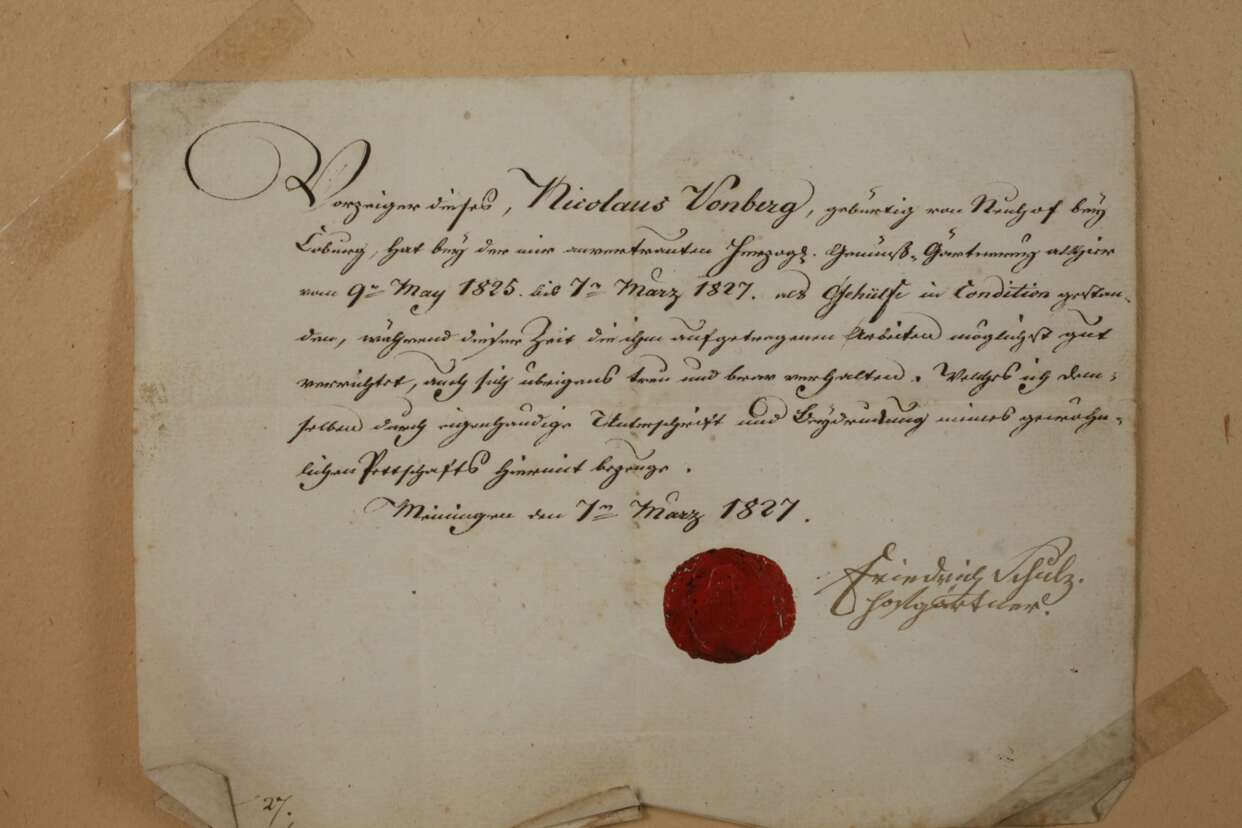 Vorzeiger dieses, Nicolaus Vonberg, gebürtig von Neuhof bey
Coburg, hat bey der mir anvertrauten Herzogl. Gemüß-Gärtnerey allhier
vom 9ten May 1825. bis 7ten März 1827. als Gehülfe in Condition gestan-
den, während dieser Zeit die ihm aufgetragenen Arbeiten möglichst gut
verrichtet, auch sich übrigens treu und brav verhalten. Welches ich dem-
selben durch eigenhändige Unterschrift und Beydruckung meines gewöhn-
lichen Pettschafts hiermit bezeuge.
Meiningen den 7ten März 1827.
Friedrich Schulz.
Hofgärtner.
27.